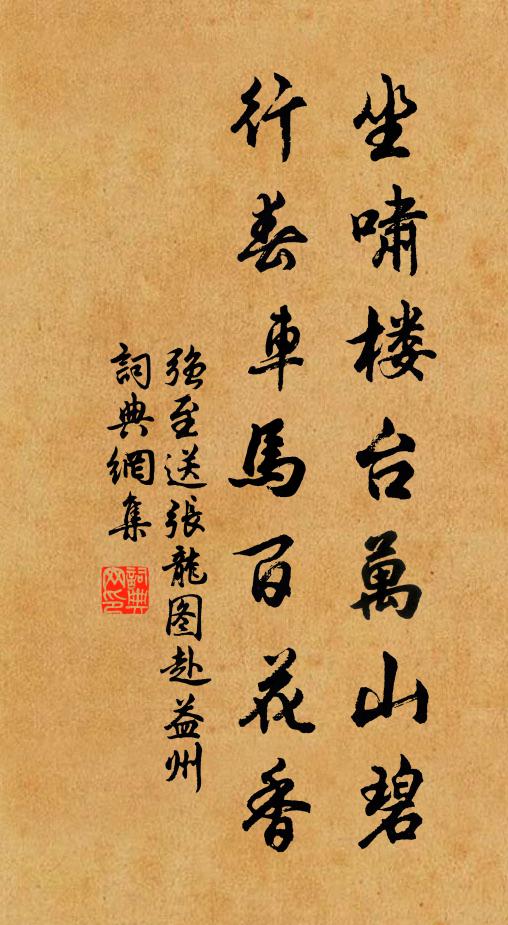 坐啸楼台萬山碧
行春車馬百花香
强至送張龍图赴益州
詞典網集
詞典網印